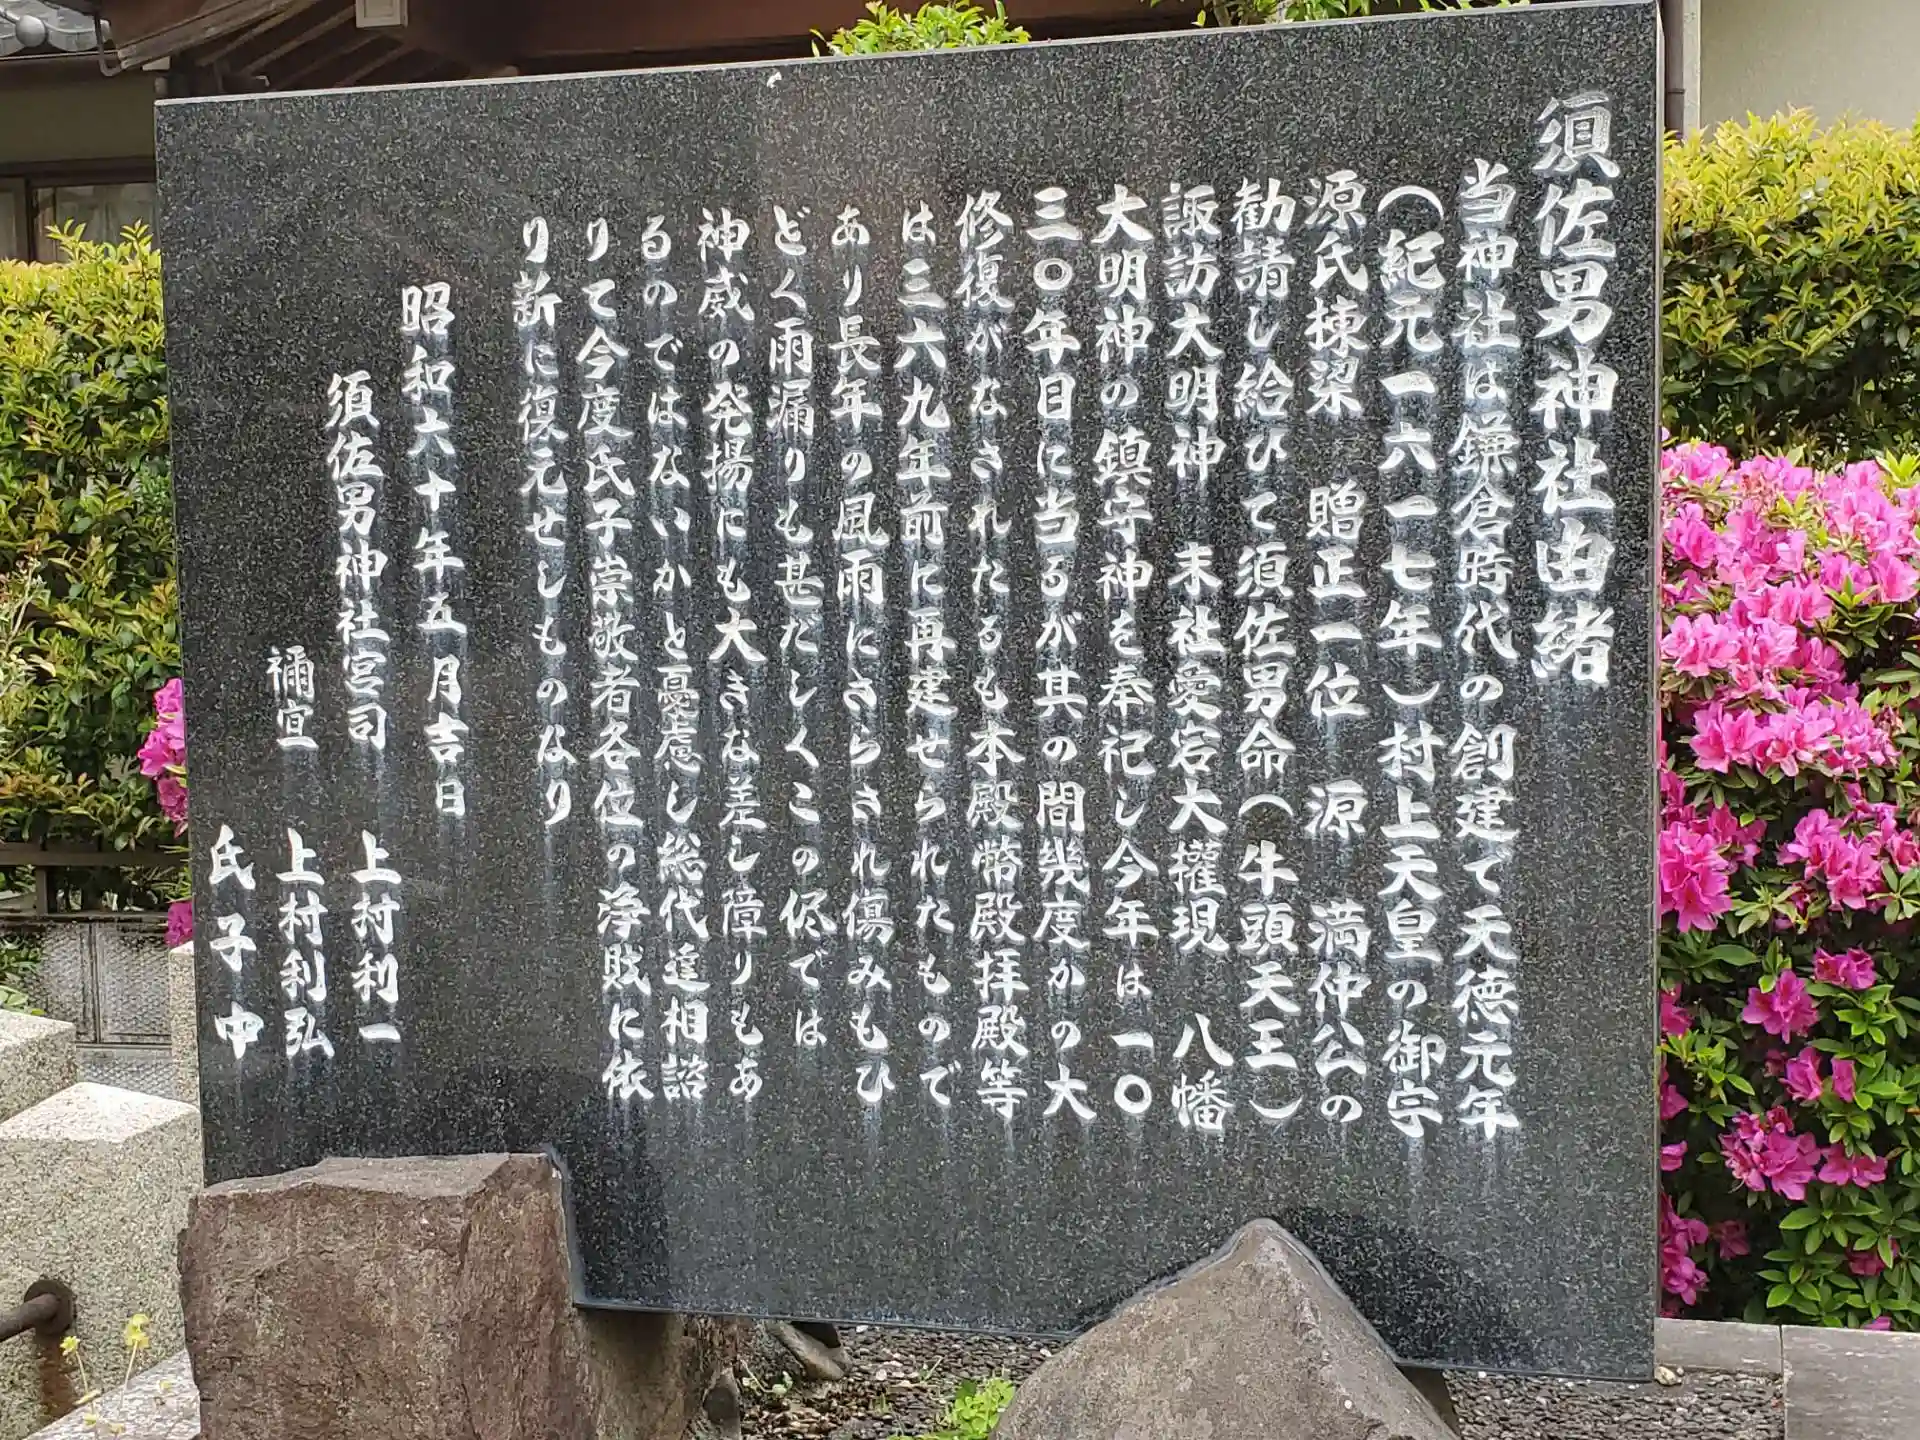 須佐男神社由緒
当神社は鎌倉時代の創建で天徳元年
(紀元一六一七年)村上天皇の御宇
源氏棟梁 贈正一位 源 満仲公の
勧請し給ひて須佐男命(牛頭天王)
諏訪大明神 末社愛宕大権現 八幡
大明神の鎮守神を奉祀し今年は一〇
三〇年目に当るが其の間幾度かの大
修復がなされたるも本殿幣殿拝殿等
は三六九年前に再建せられたもので
あり長年の風雨にさらされ傷みもひ
どく雨漏りも甚だしくこの侭では
神威の発揚にも大きな差し障りもあ
るのではないかと憂慮し総代達相諮
りて今度氏子崇敬者各位の浄財に依
り新に復元せしものなり
昭和六十年五月吉日
須佐男神社宮司 上村利一
禰宜 上村利弘
氏子中